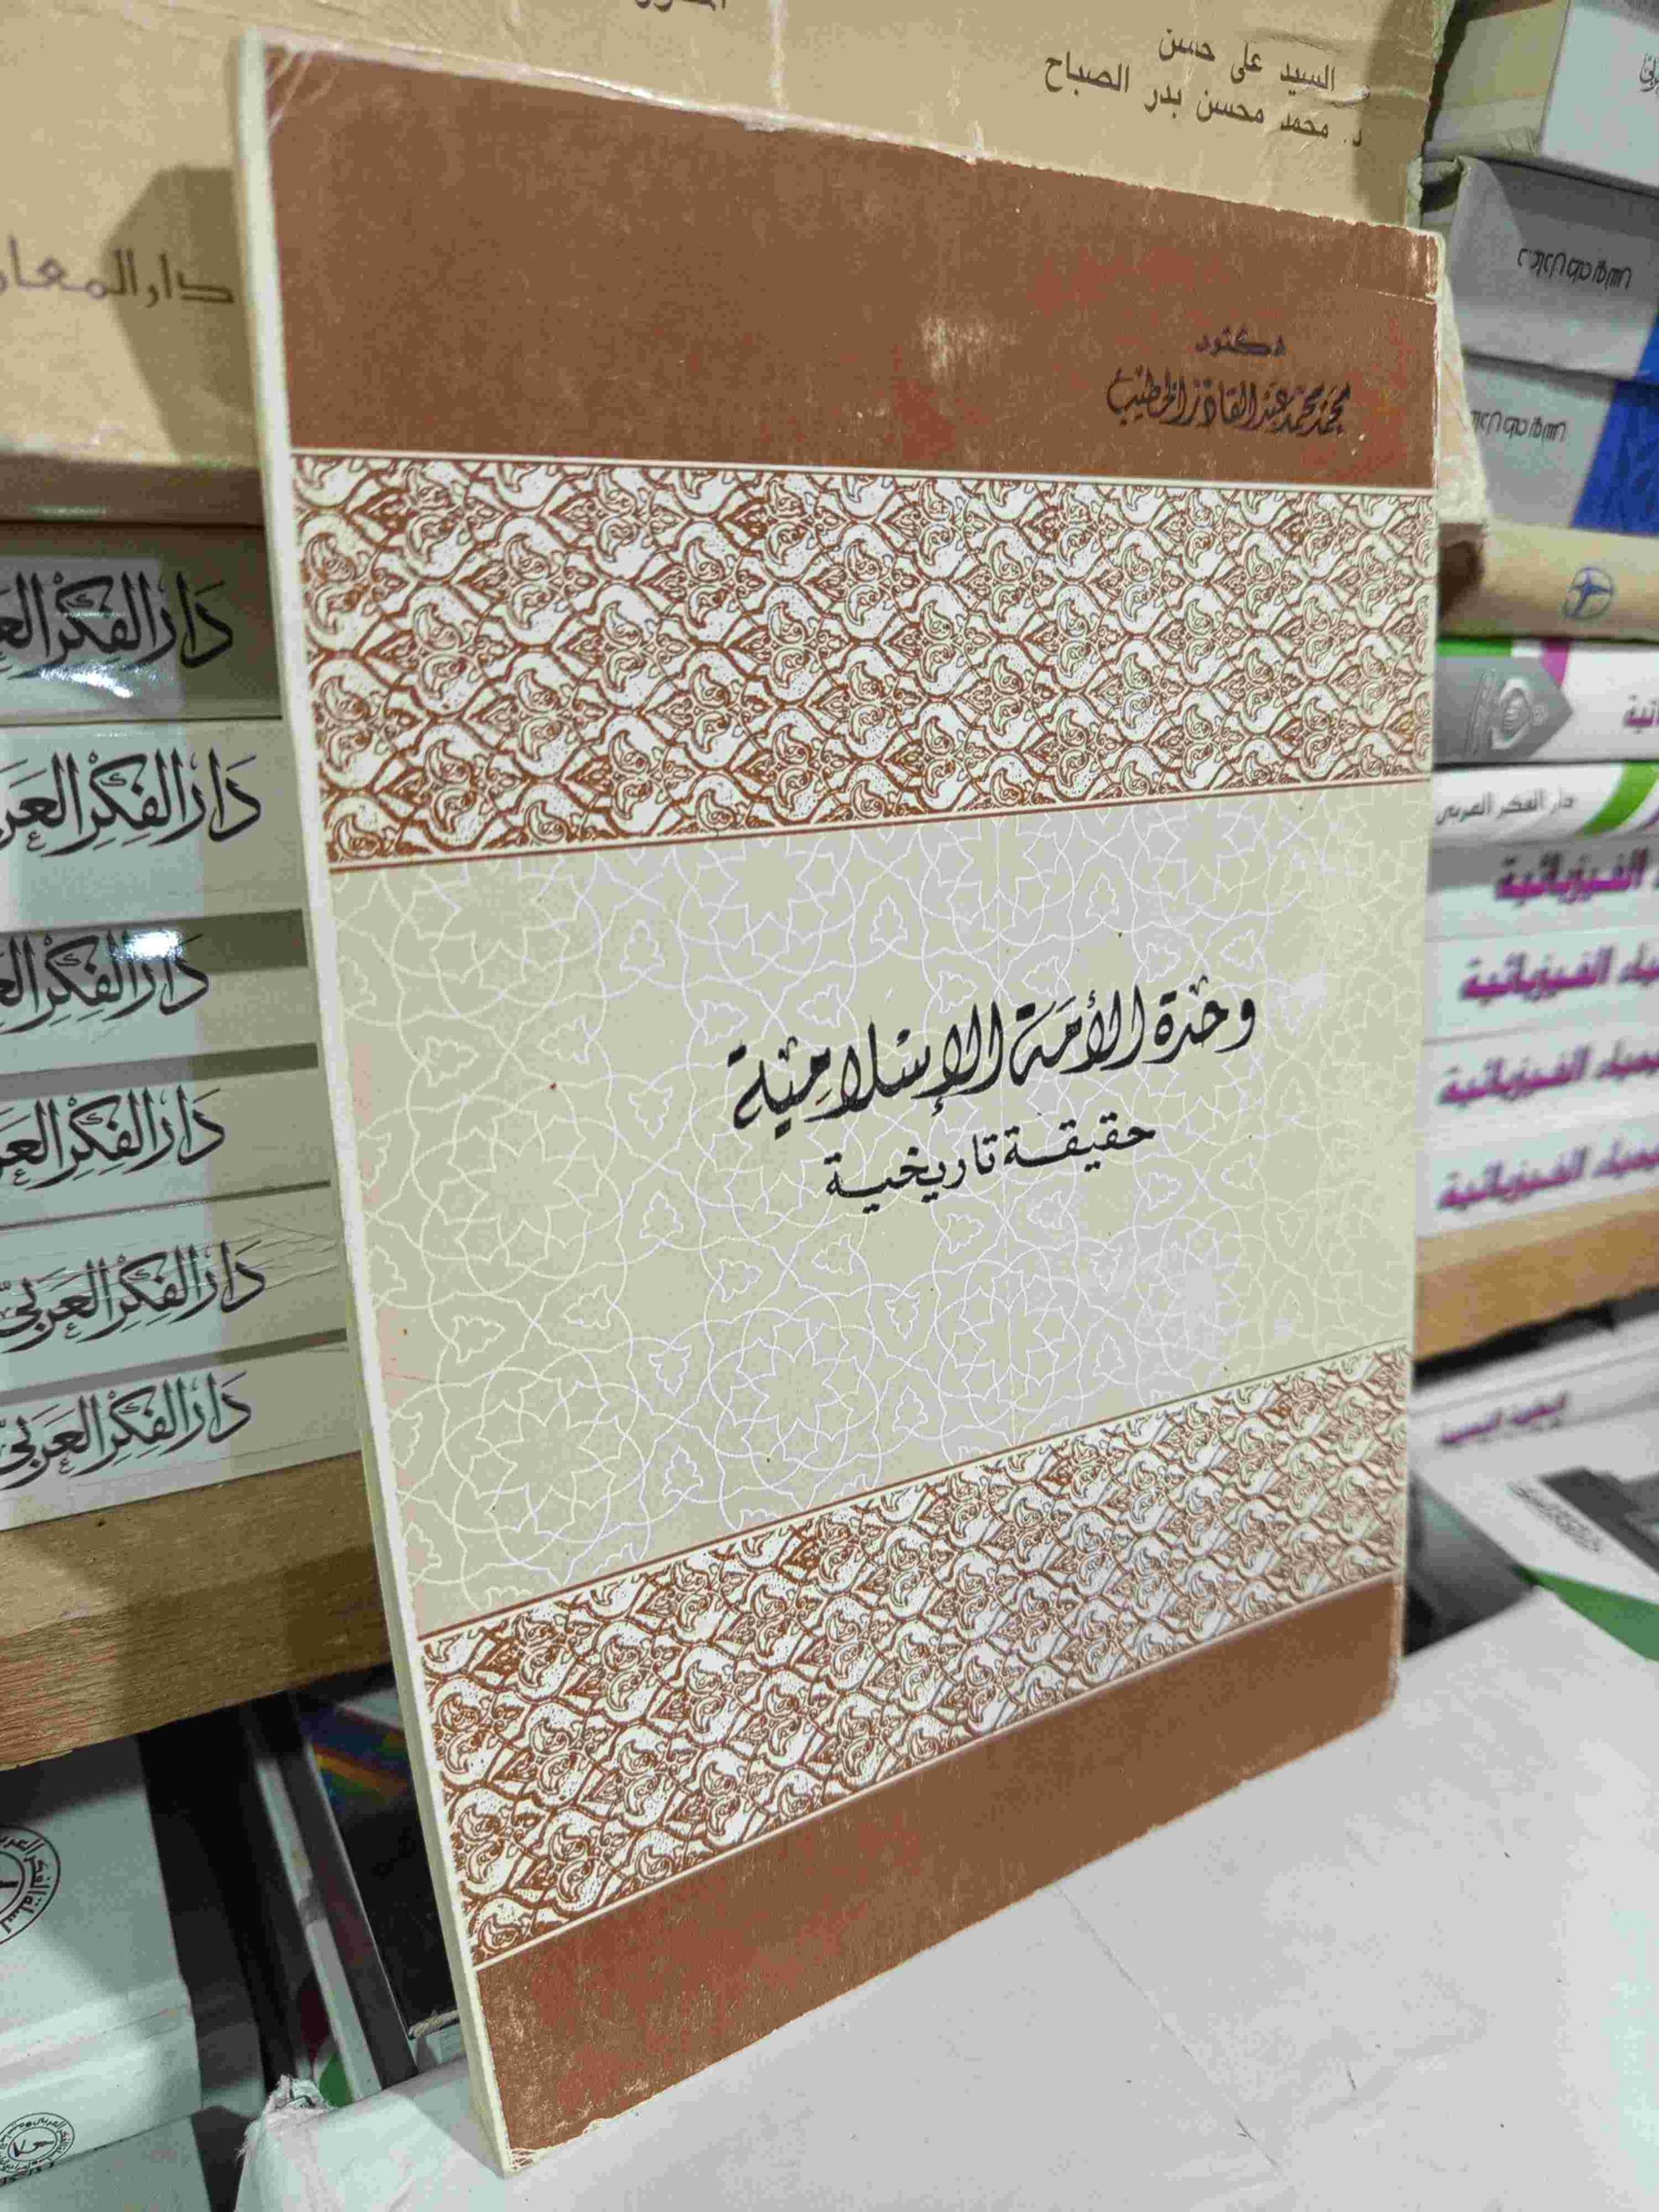 السيد على حسن
د. محمد محسن بدر الصباح
دار المعا
دكتور
محمد محمد عبد القادر الخطيب
وحدة الأمة الإسلامية
حقيقة تاريخية
دار الفكر الع
دار الفكر العر
دار الفكر الع
دار الفكر العر
دار الفكر العربي
دار الفكر العربي
دار الفكر العربي
الفيزيائية
ياء الفيزيائية
يمياء الفيزيائية
يمياء الفيزيائية